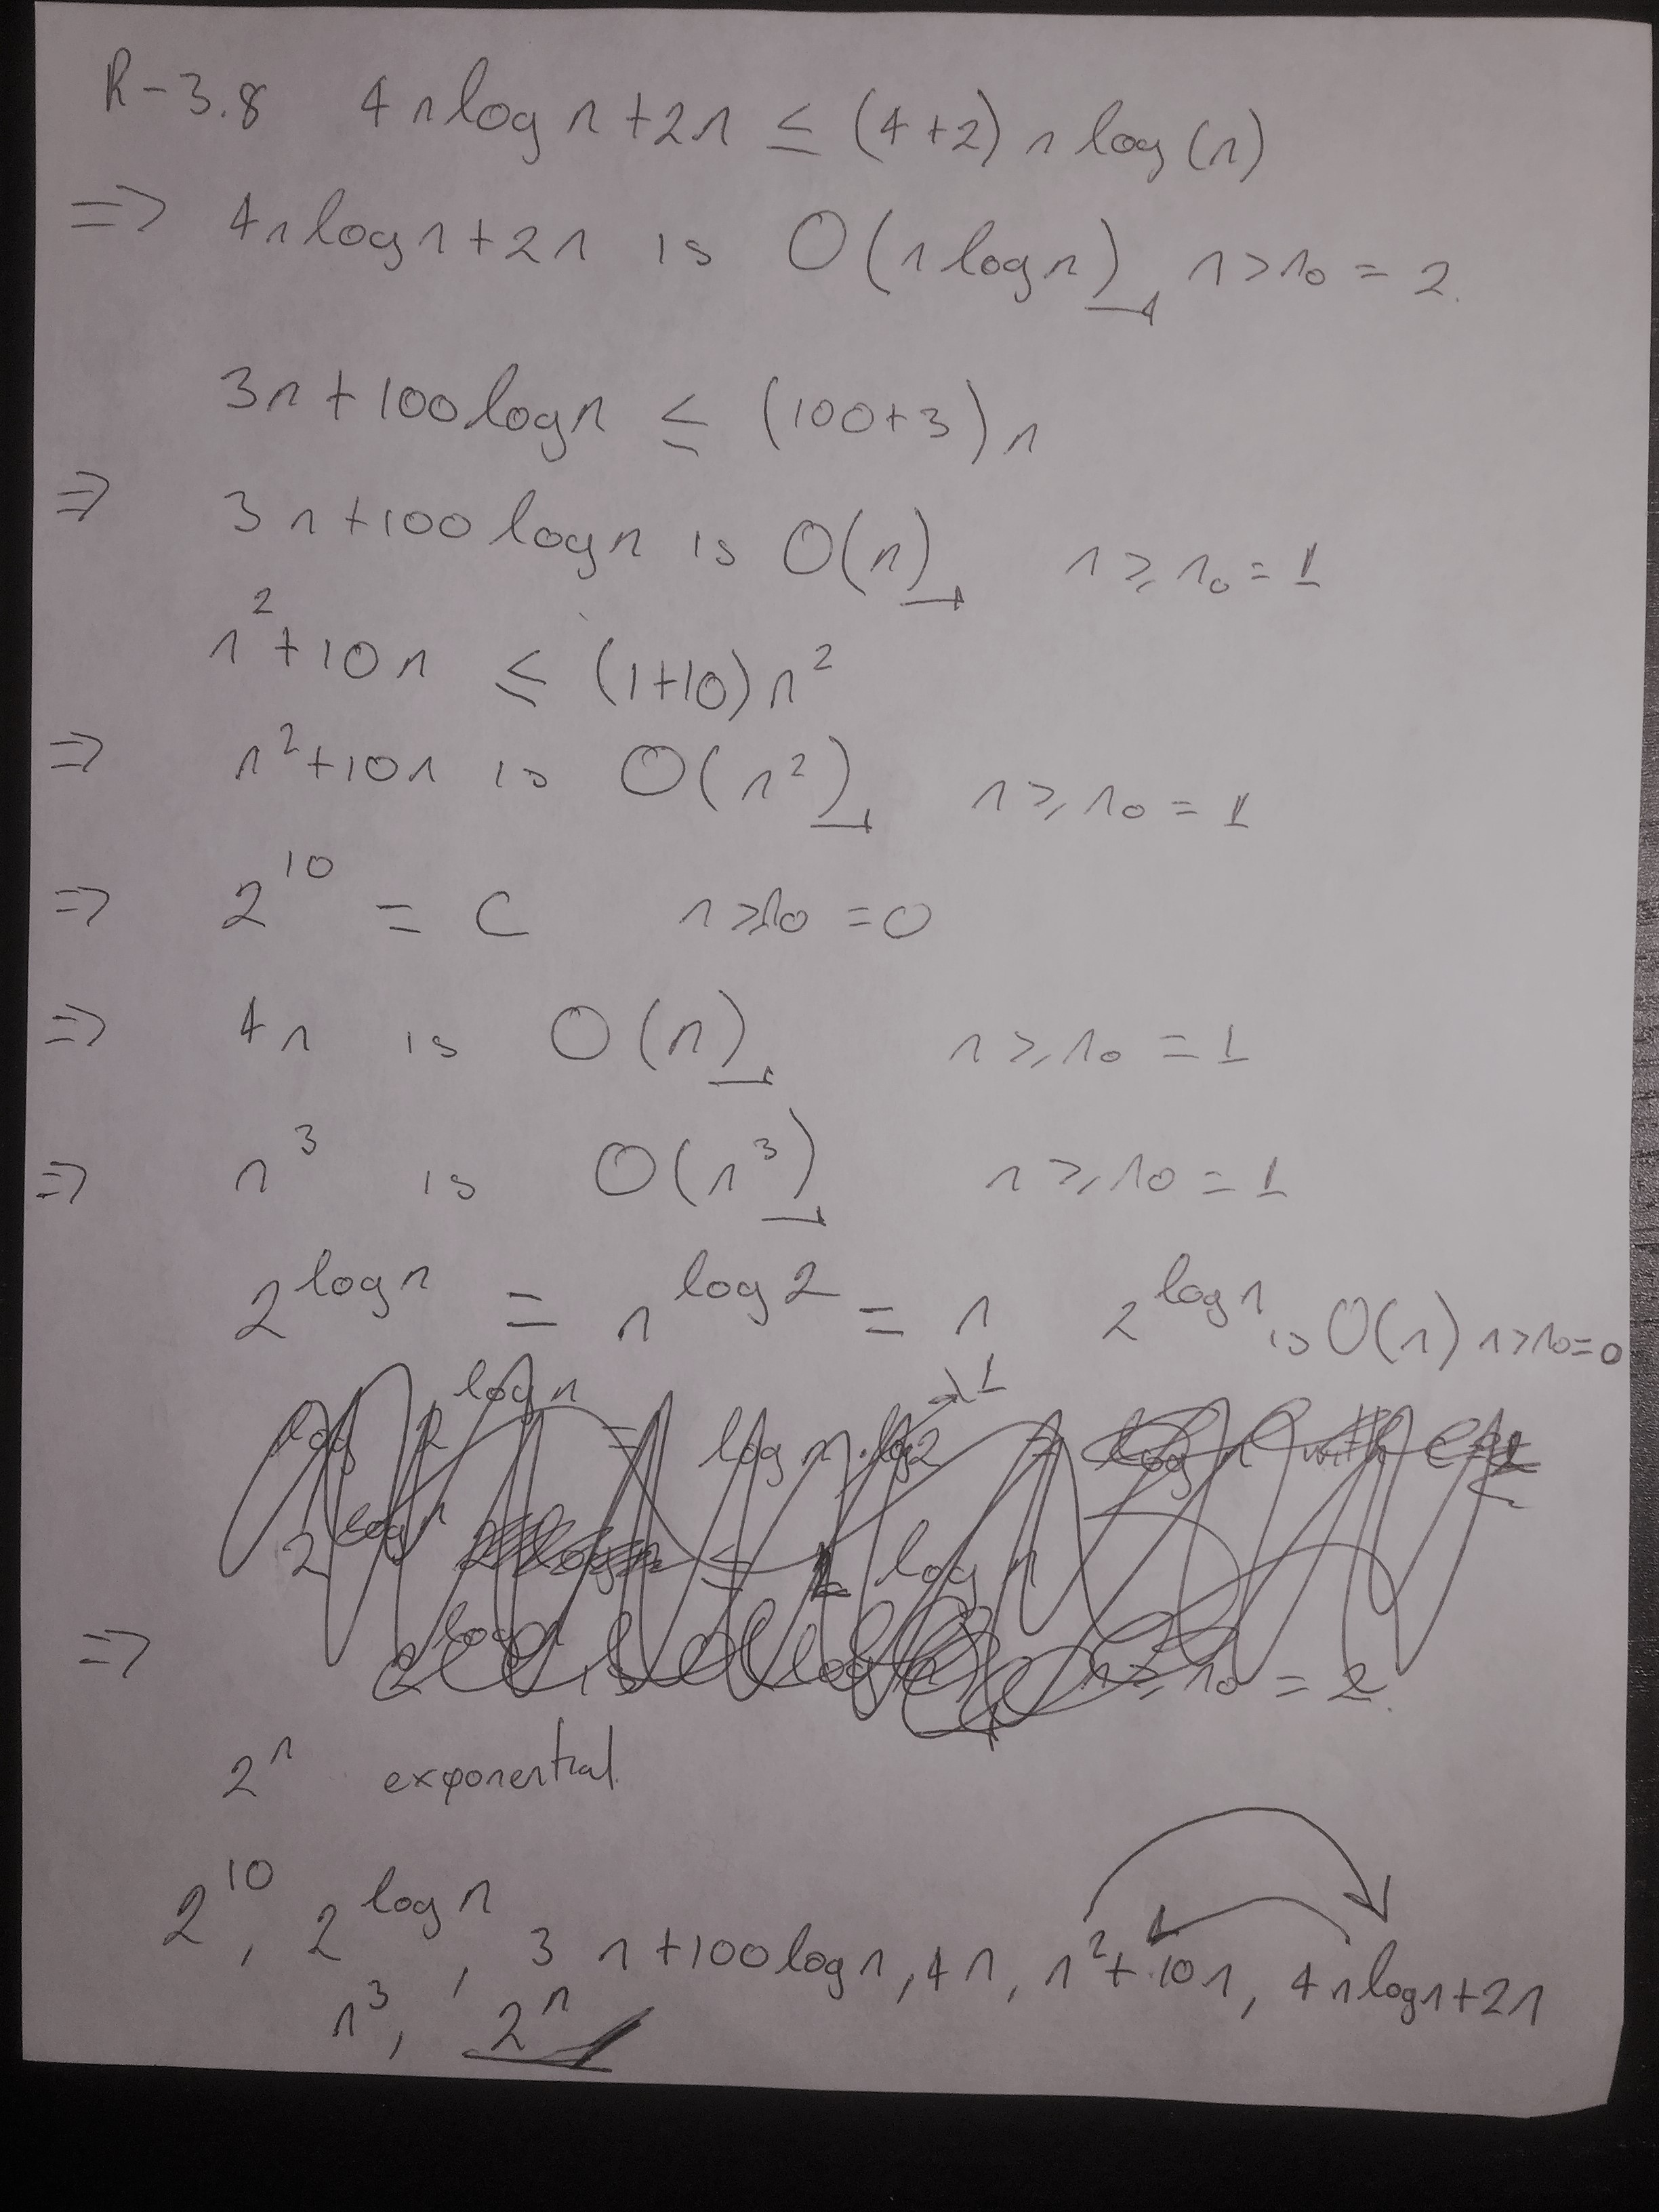 R-3.8 4n log n + 2n ≤ (4+2) n log (n)
=> 4n log n + 2n is O(n log n) n > n₀ = 2.
3n + 100 log n ≤ (100+3) n
=> 3n + 100 log n is O(n) n ≥ n₀ = 1
n² + 10n ≤ (1+10) n²
=> n² + 10n is O(n²) n ≥ n₀ = 1
=> 2¹⁰ = C n ≥ n₀ = 0
=> 4n is O(n) n ≥ n₀ = 1
=> n³ is O(n³) n ≥ n₀ = 1
2^log n = n^log 2 = n 2^log n is O(n) n > n₀ = 0
log 2^log n = log n · log 2 → 1 = log n with
2^log n ≤ log n
=> 2^log n is n ≥ n₀ = 2.
2ⁿ exponential.
2¹⁰, 2^log n, 3n + 100 log n, 4n, n² + 10n, 4n log n + 2n
n³, 2ⁿ